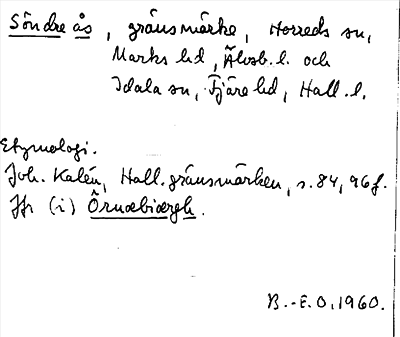 Söndre ås, gränsmärke, Horreds sn,
Marks hd, Älvsb. l. och
Idala sn, Fjäre hd, Hall. l.
Etymologi.
Joh. Kalén, Hall. gränsmärken, s. 84, 96 f.
Jfr (i) Örnæbiærgh.
B.-E. O, 1960.